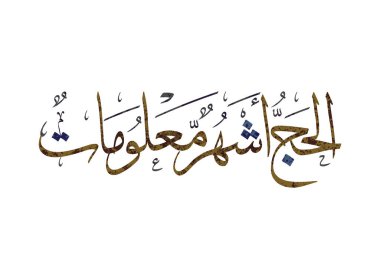 الحَجُّ أَشْهُرٌ مَّعْلُومَاتٌ